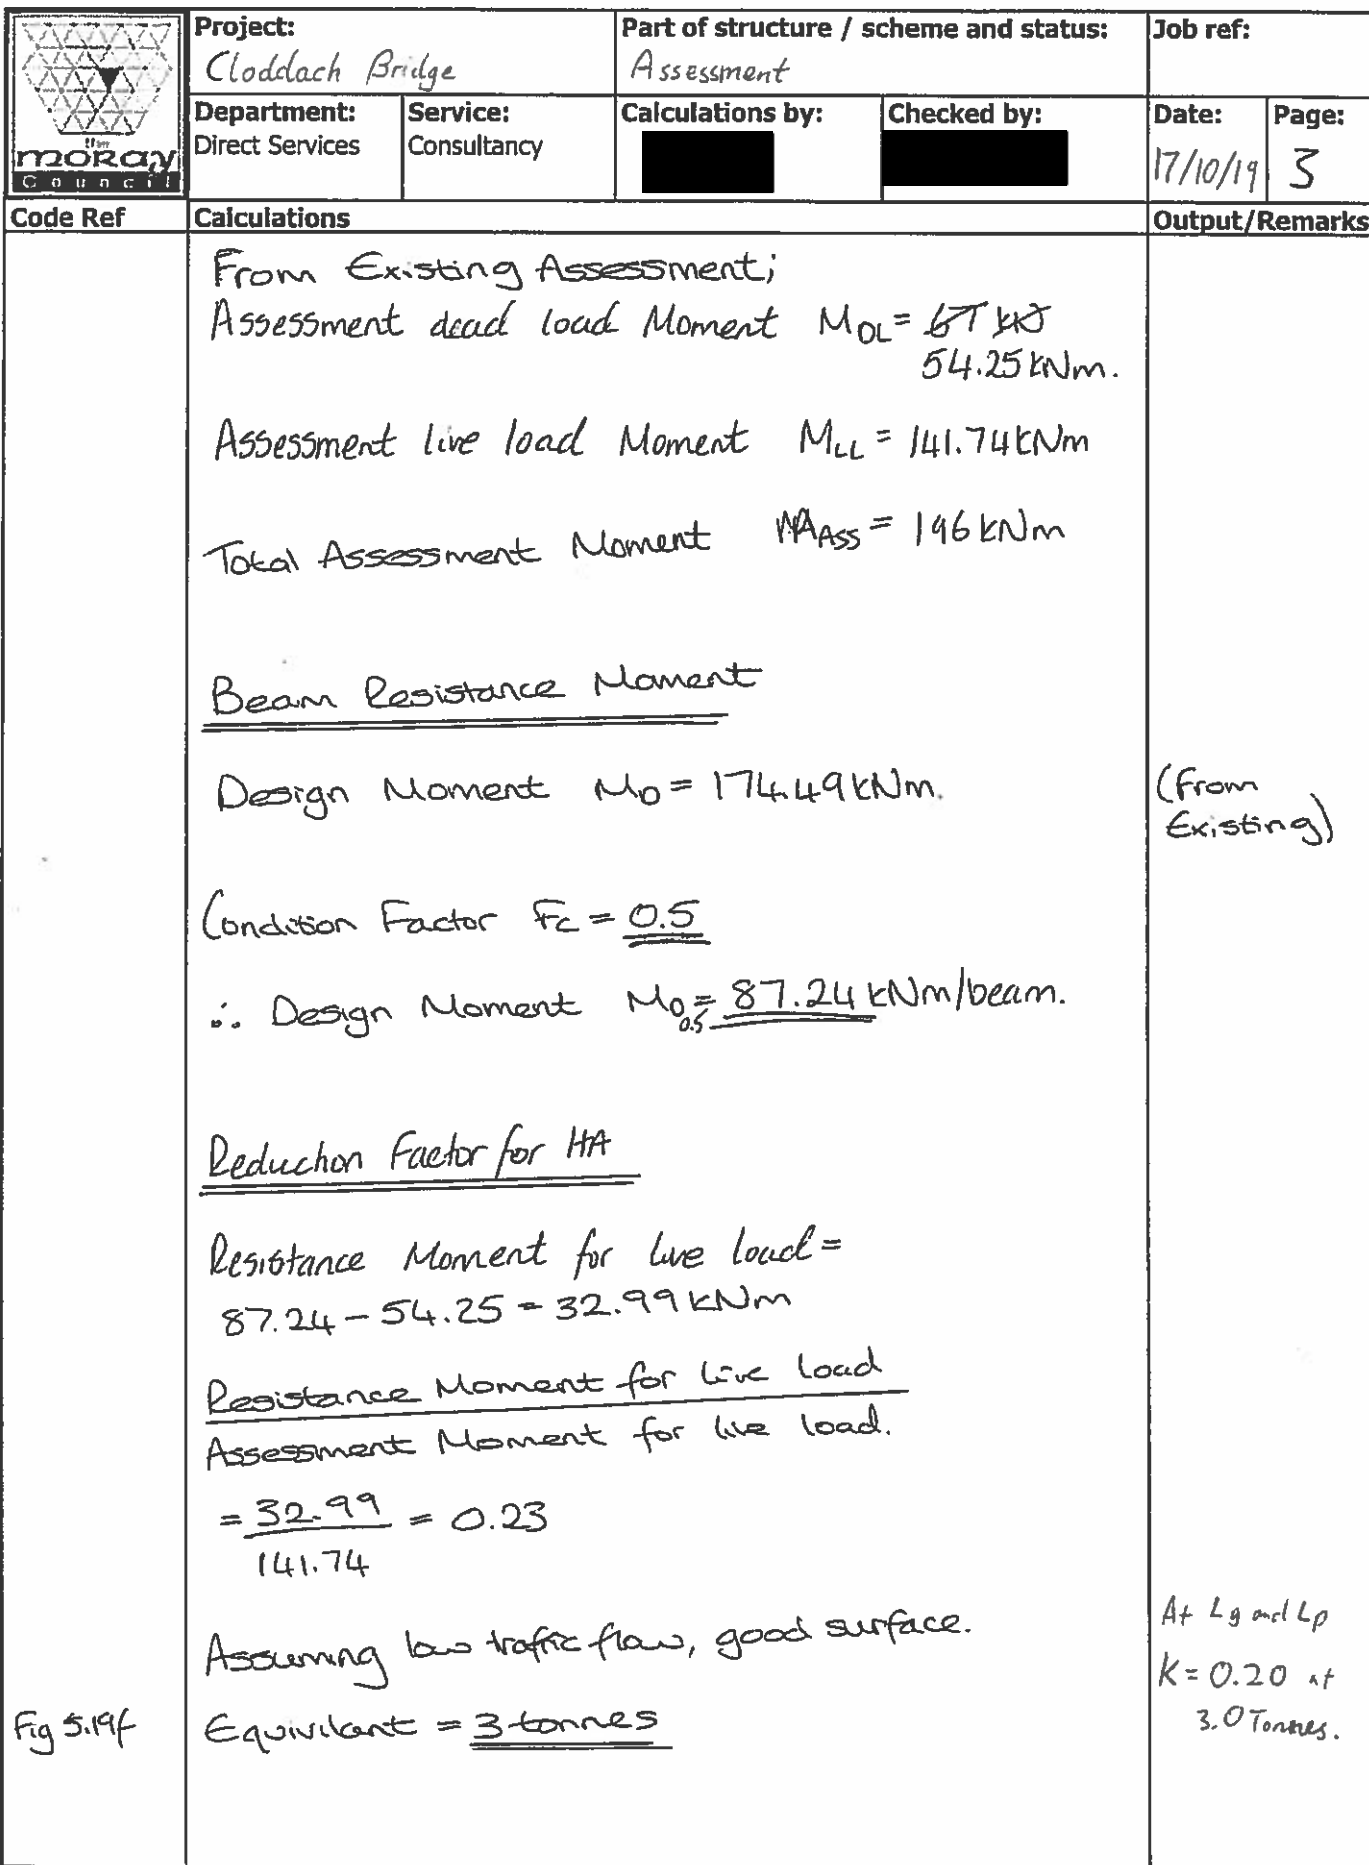 the
moray
Council
Project:
Cloddach Bridge
Part of structure / scheme and status:
Assessment
Job ref:
Department:
Direct Services
Service:
Consultancy
Calculations by:
Checked by:
Date:
17/10/19
Page:
3
Code Ref
Calculations
Output/Remarks
From Existing Assessment;
Assessment dead load Moment M_DL =
54.25 kNm.
Assessment live load Moment M_LL = 141.74 kNm
Total Assessment Moment M_Ass = 196 kNm
Beam Resistance Moment
Design Moment M_D = 174.49 kNm.
(From
Existing)
Condition Factor Fc = 0.5
∴ Design Moment M_D 0.5 = 87.24 kNm/beam.
Reduction Factor for HA
Resistance Moment for live load =
87.24 - 54.25 = 32.99 kNm
Resistance Moment for Live load
Assessment Moment for live load.
= 32.99 = 0.23
141.74
Assuming low traffic flow, good surface.
At Lg and Lp
K = 0.20 at
3.0 Tonnes.
Fig 5.19f
Equivilant = 3 tonnes